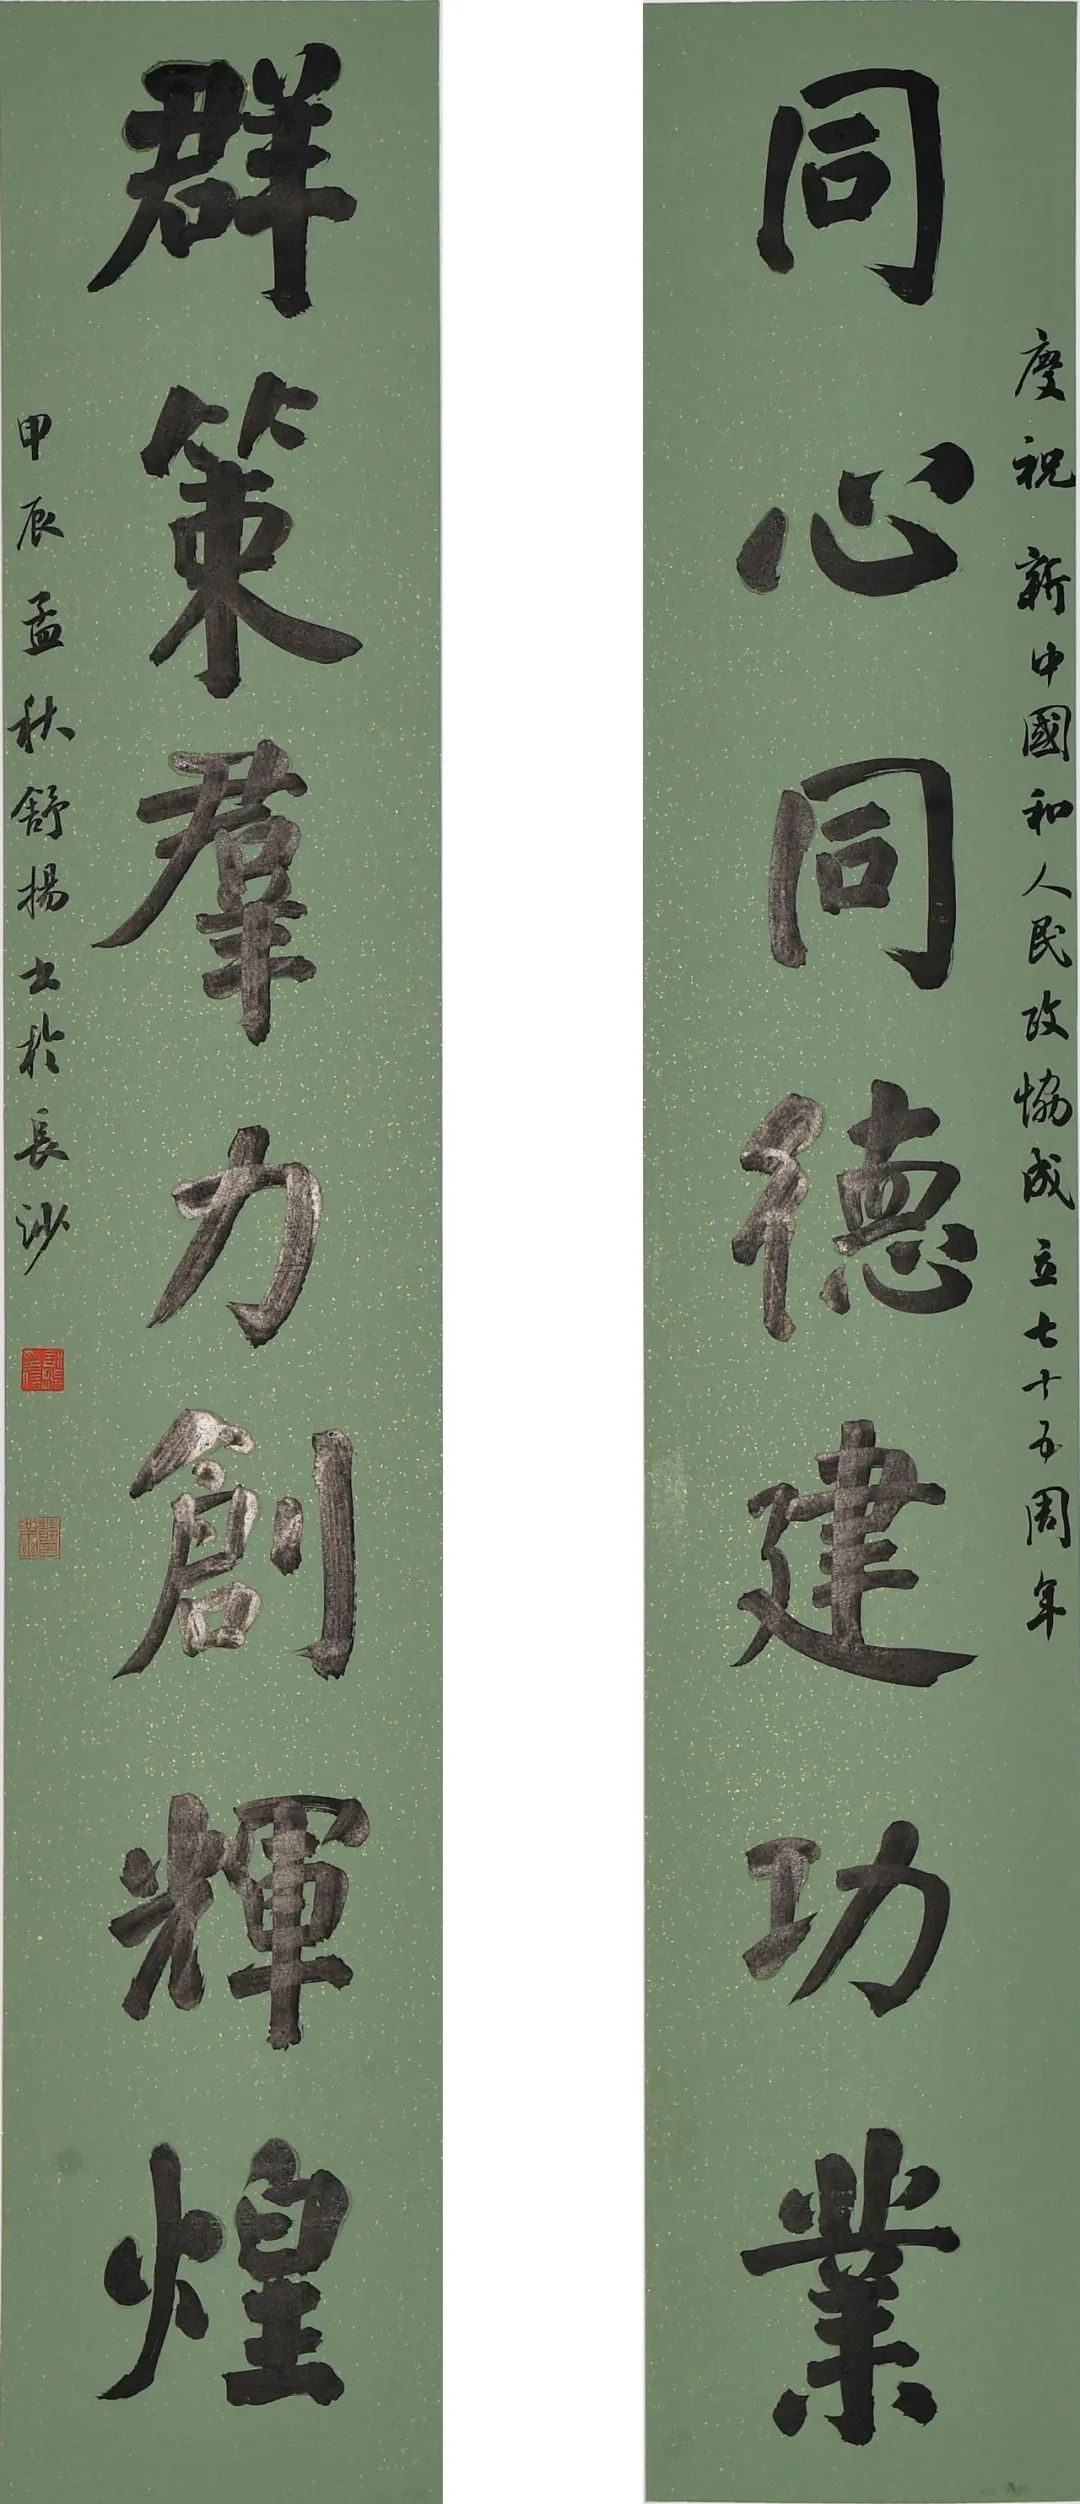 慶祝新中國和人民政協成立七十五周年
同心同德建功業
群策羣力創輝煌
甲辰孟秋舒揚書於長沙